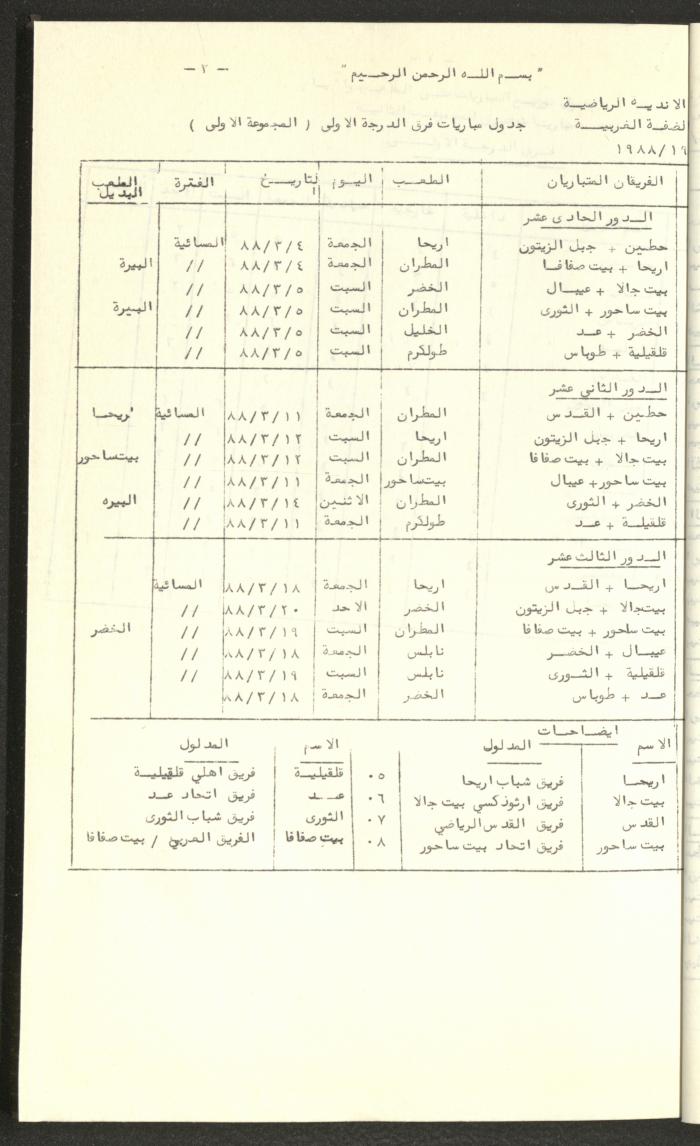 - ٢ -
" بسم الله الرحمن الرحيم "
الاندية الرياضية
لضفة الغربية جدول مباريات فرق الدرجة الاولى ( المجموعة الاولى )
١٩٨٨/١٩
الفريقان المتباريان الملعب اليوم التاريخ الفترة الملعب البديل
الدور الحادى عشر
حطين + جبل الزيتون اريحا الجمعة ٨٨/٣/٤ المسائية
اريحا + بيت صفافا المطران الجمعة ٨٨/٣/٤ // البيرة
بيت جالا + عيبال الخضر السبت ٨٨/٣/٥ //
بيت ساحور + الثورى المطران السبت ٨٨/٣/٥ // البيرة
الخضر + عد الخليل السبت ٨٨/٣/٥ //
قلقيلية + طوباس طولكرم السبت ٨٨/٣/٥ //
الدور الثانى عشر
حطين + القدس المطران الجمعة ٨٨/٣/١١ المسائية اريحا
اريحا + جبل الزيتون اريحا السبت ٨٨/٣/١٢ //
بيت جالا + بيت صفافا المطران السبت ٨٨/٣/١٢ // بيتساحور
بيت ساحور + عيبال بيتساحور الجمعة ٨٨/٣/١١ //
الخضر + الثورى المطران الاثنين ٨٨/٣/١٤ // البيره
قلقيلية + عد طولكرم الجمعة ٨٨/٣/١١ //
الدور الثالث عشر
اريحا + القدس اريحا الجمعة ٨٨/٣/١٨ المسائية
بيتجالا + جبل الزيتون الخضر الاحد ٨٨/٣/٢٠ //
بيت ساحور + بيت صفافا المطران السبت ٨٨/٣/١٩ // الخضر
عيبال + الخضر نابلس الجمعة ٨٨/٣/١٨ //
قلقيلية + الثورى نابلس السبت ٨٨/٣/١٩ //
عد + طوباس الخضر الجمعة ٨٨/٣/١٨
ايضاحات
الاسم المدلول الاسم المدلول
اريحا فريق شباب اريحا ٠٥ قلقيلية فريق اهلي قلقيلية
بيت جالا فريق ارثوذكسي بيت جالا ٠٦ عد فريق اتحاد عد
القدس فريق القدس الرياضي ٠٧ الثورى فريق شباب الثورى
بيت ساحور فريق اتحاد بيت ساحور ٠٨ بيت صفافا الفريق العربي / بيت صفافا